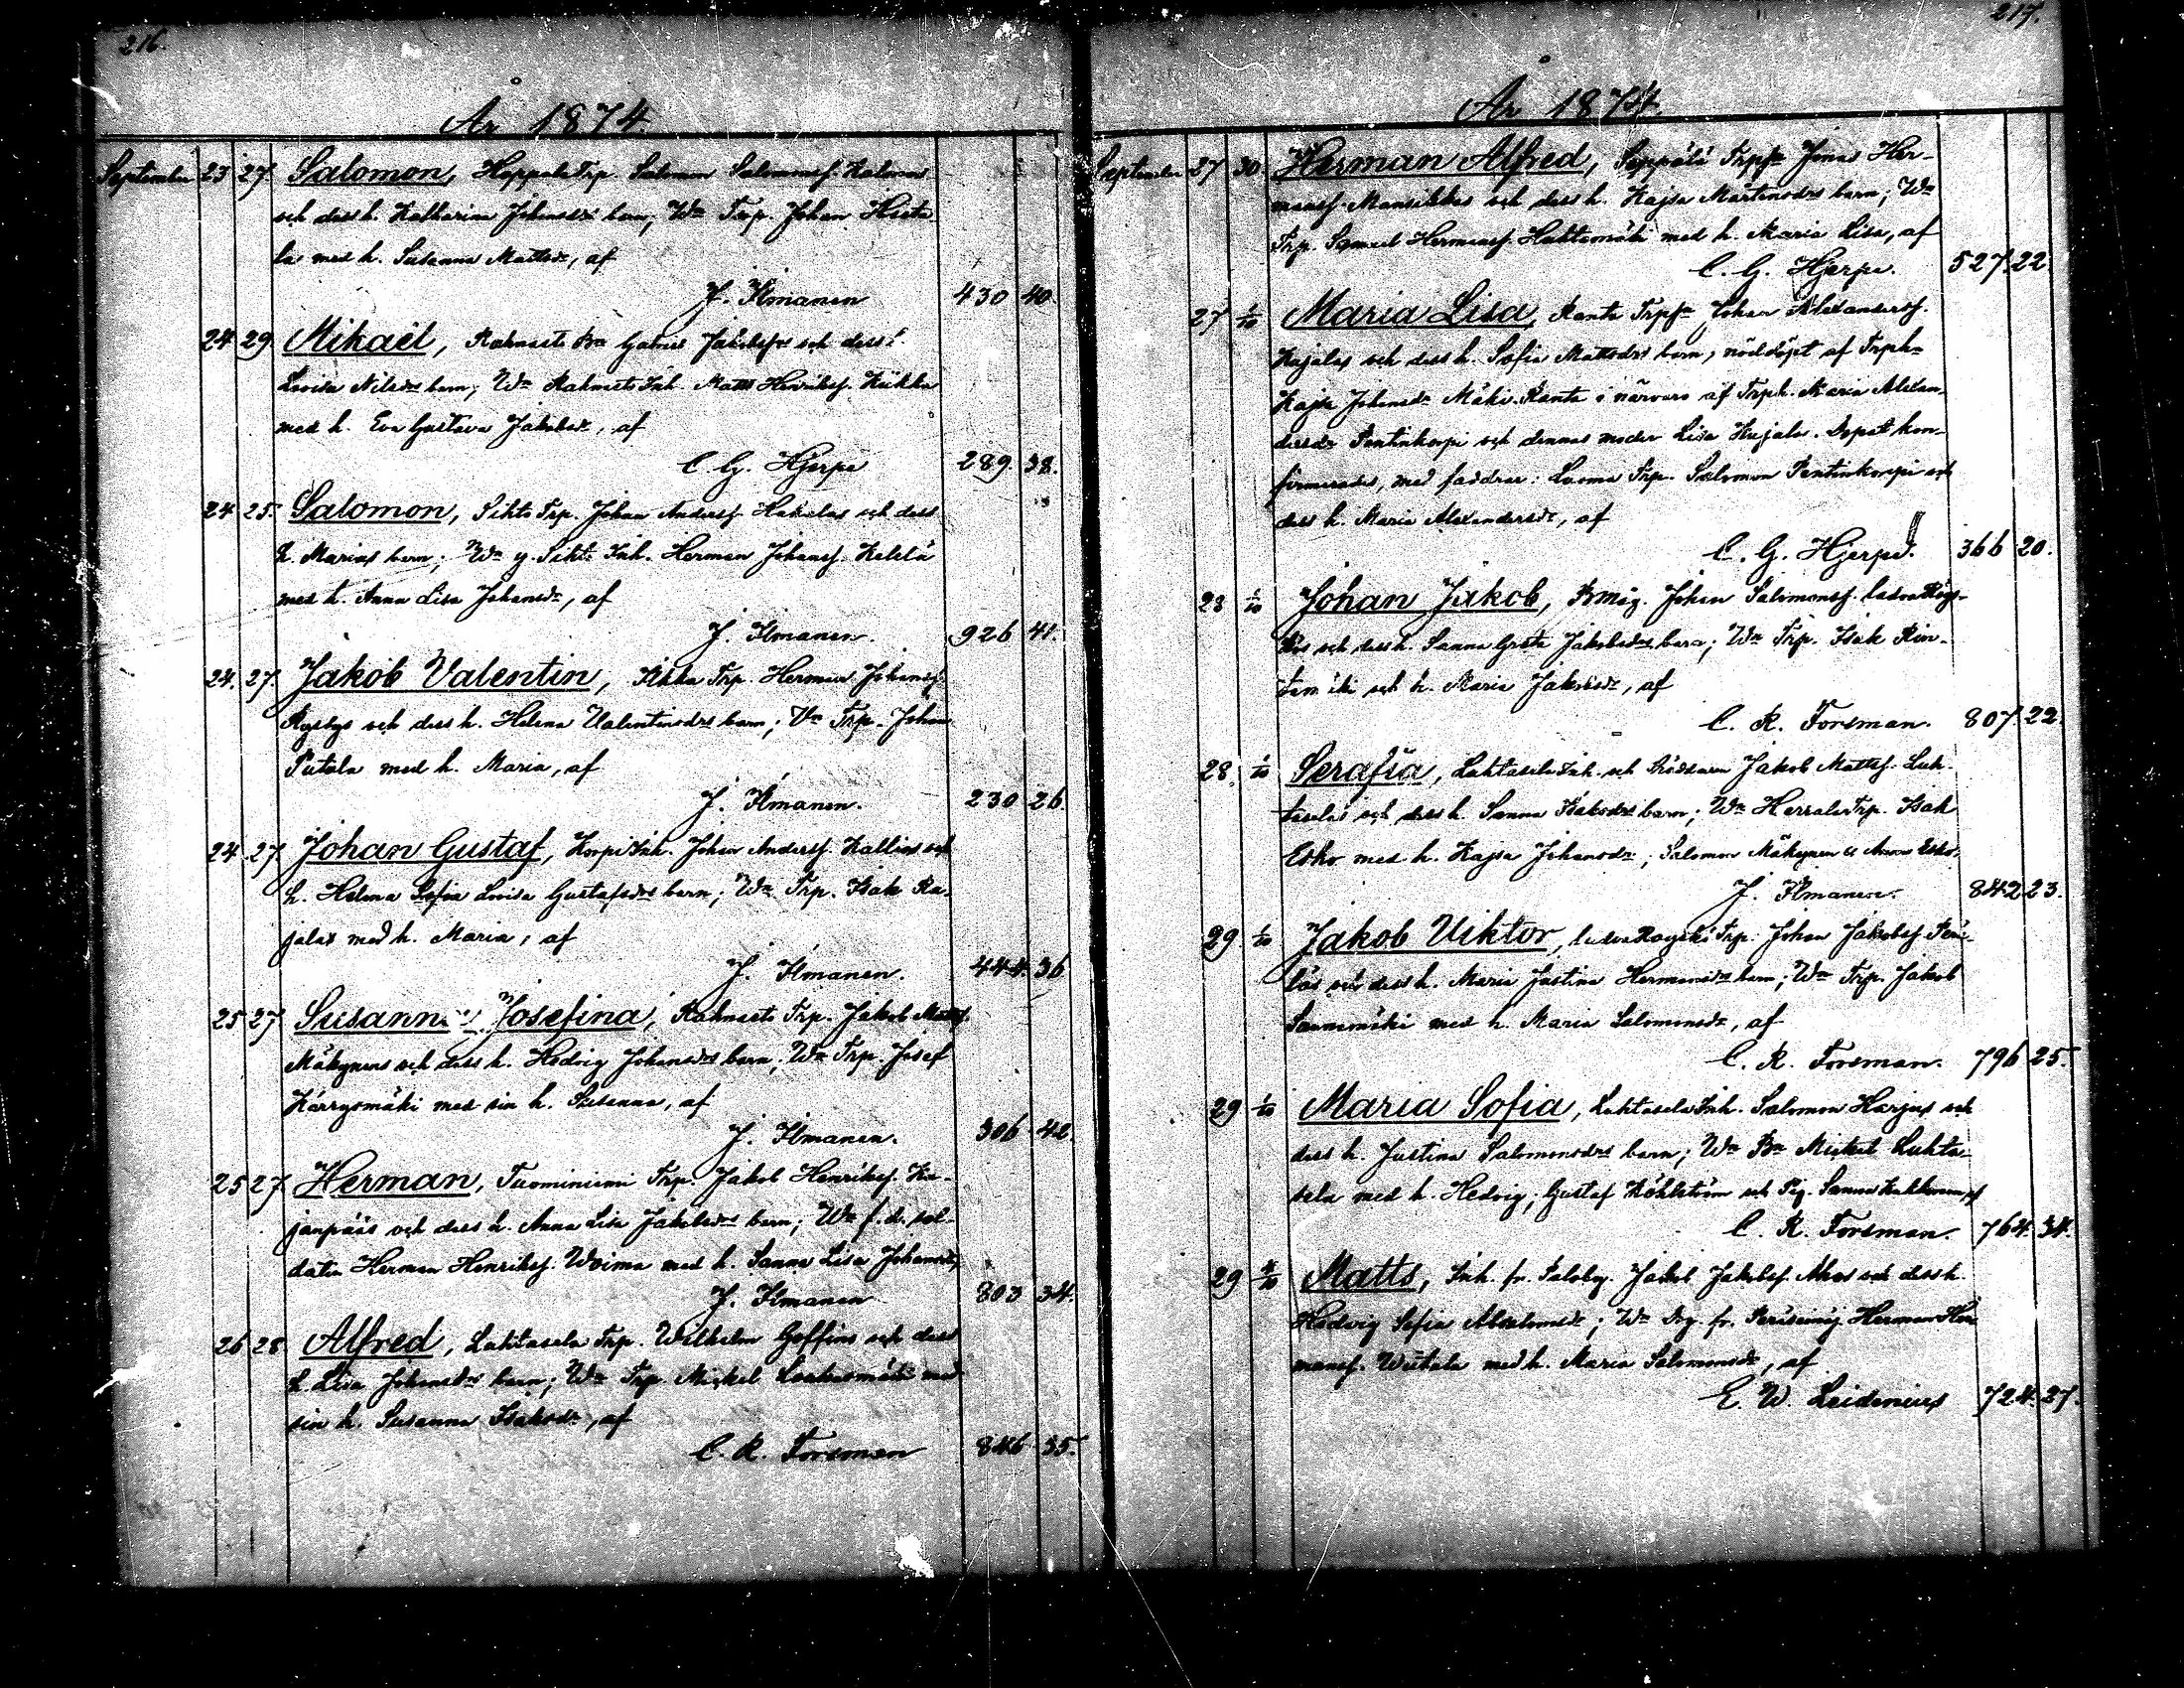 216.
År 1874
September 23 27 Salomon, Hoppala Trp. Salomon Salomonsf.
och dess h. Katharina Johansdrs barn; Wn Trp. Johan
la med h. Susanna Mattsdr, af
J. Ilmanen 430 40.
24 29 Mikaël, Rahnasto Bn Gabriel Jakobsfs och dess h.
Lovisa Nilsdrs barn; Wn Rahnasto Inh. Matts Henriksf. Kiikka
med h. Eva Gustava Jakobsdr, af
C. G. Hjerpe 289. 38.
24 25. Salomon, Sihto Trp. Johan Andersf. Hakalas och dess
h. Marias barn; Wn y. Sihto Inh. Herman Johansf.
med h. Anna Lisa Johansdr, af
J. Ilmanen. 926 41.
24. 27. Jakob Valentin, Trp. Herman Johansf.
och dess h. Helena Valentinsdrs barn; Wn Trp. Johan
med h. Maria, af
J. Ilmanen. 230 26.
24 27 Johan Gustaf, Korpi Inh. Johan Andersf. Kallios och
h. Helena Sofia Lovisa Gustafsdrs barn; Wn Trp. Isak Ra-
jalas med h. Maria, af
J. Ilmanen. 444. 36
25 27 Susanna Josefina, Rahnasto Trp. Jakob Mattsf.
Mäkynens och dess h. Hedvig Johansdrs barn; Wn Trp. Josef
Kärrysmäki med sin h. Susanna, af
J. Ilmanen. 306 42.
25 27. Herman, Tuominiemi Trp. Jakob Henriksf. Ka-
janpääs och dess h. Anna Lisa Jakobsdrs barn; Wn f. d. sol-
daten Herman Henriksf. Woima med h. Sanna Lisa Johansdr,
J. Ilmanen 803 34.
26 28 Alfred, Luhtasela Trp. Wilhelm Goffins och dess
h. Lisa Johansdrs barn; Wn Trp. Mickel med
sin h. Susanna Isaksdr, af
C. R. Forsman 846 35.
217.
År 1874.
September 27 30. Herman Alfred, Seppälä Trpfn Jonas Her-
mansf. Mansikkas och dess h. Kajsa Mårtensdrs barn; Wn
Trp. Samuel Hermansf. Huhtamäki med h. Maria Lisa, af
C. G. Hjerpe. 527. 22.
27 1/10 Maria Lisa, Ranta Trpfn Johan Alexandersf.
Kujalas och dess h. Sofia Mattsdrs barn, nöddöpt af Trph.
Kajsa Johansdr Mäki-Ranta i närvaro af Trph. Maria Alexan-
dersdr Pentinkorpi och dennes moder Lisa Kujala. Dopet kon-
firmerades, med faddrar: Luoma Trp. Salomon Pentinkorpi och
dess h. Maria Alexandersdr, af
C. G. Hjerpe. 366 20.
28 1/10 Johan Jakob, Bmåg. Johan Salomonsf.
lös och dess h. Sanna Greta Jakobsdrs barn; Wn Trp. Isak Rin-
tamäki och h. Maria Jakobsdr, af
C. R. Forsman. 807. 22.
28. 1/10 Serafia, Luhtasela Inh. och Jakob Mattsf. Luh-
taselas och dess h. Sanna Isaksdrs barn; Wn Herrala Trp. Isak
Esko med h. Kajsa Johansdr; Salomon Mäkynen & Anna Esko,
J. Ilmanen. 842 23.
29 1/10 Jakob Viktor, Trp. Johan Jakobsf.
läs och dess h. Maria Justina Hermansdrs barn; Wn Trp. Jakob
med h. Maria Salomonsdr, af
C. R. Forsman. 796 25.
29 1/10 Maria Sofia, Luhtasela Inh. Salomon Harjus och
dess h. Justina Salomonsdrs barn; Wn Bn Mickel Luhta-
sela med h. Hedvig; Gustaf och Pig. Sanna af
C. R. Forsman. 764. 34.
29 Matts, Inh. fr. Jakob Jakobsf. och dess h.
Hedvig Sofia; Wn Herman Her-
mansf. med h. Maria Salomonsdr, af
E. W. Leidenius 724. 27.